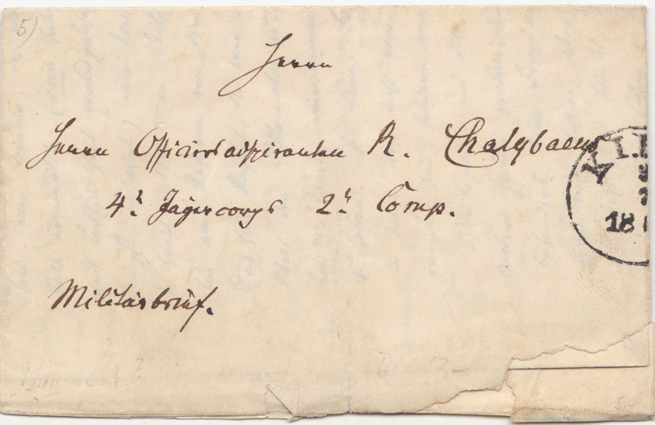 5)
Herrn
Herrn Officiersaspiranten R. Chalybaeus
4t Jägercorps 2t Comp.
Militärbrief.
KI
18